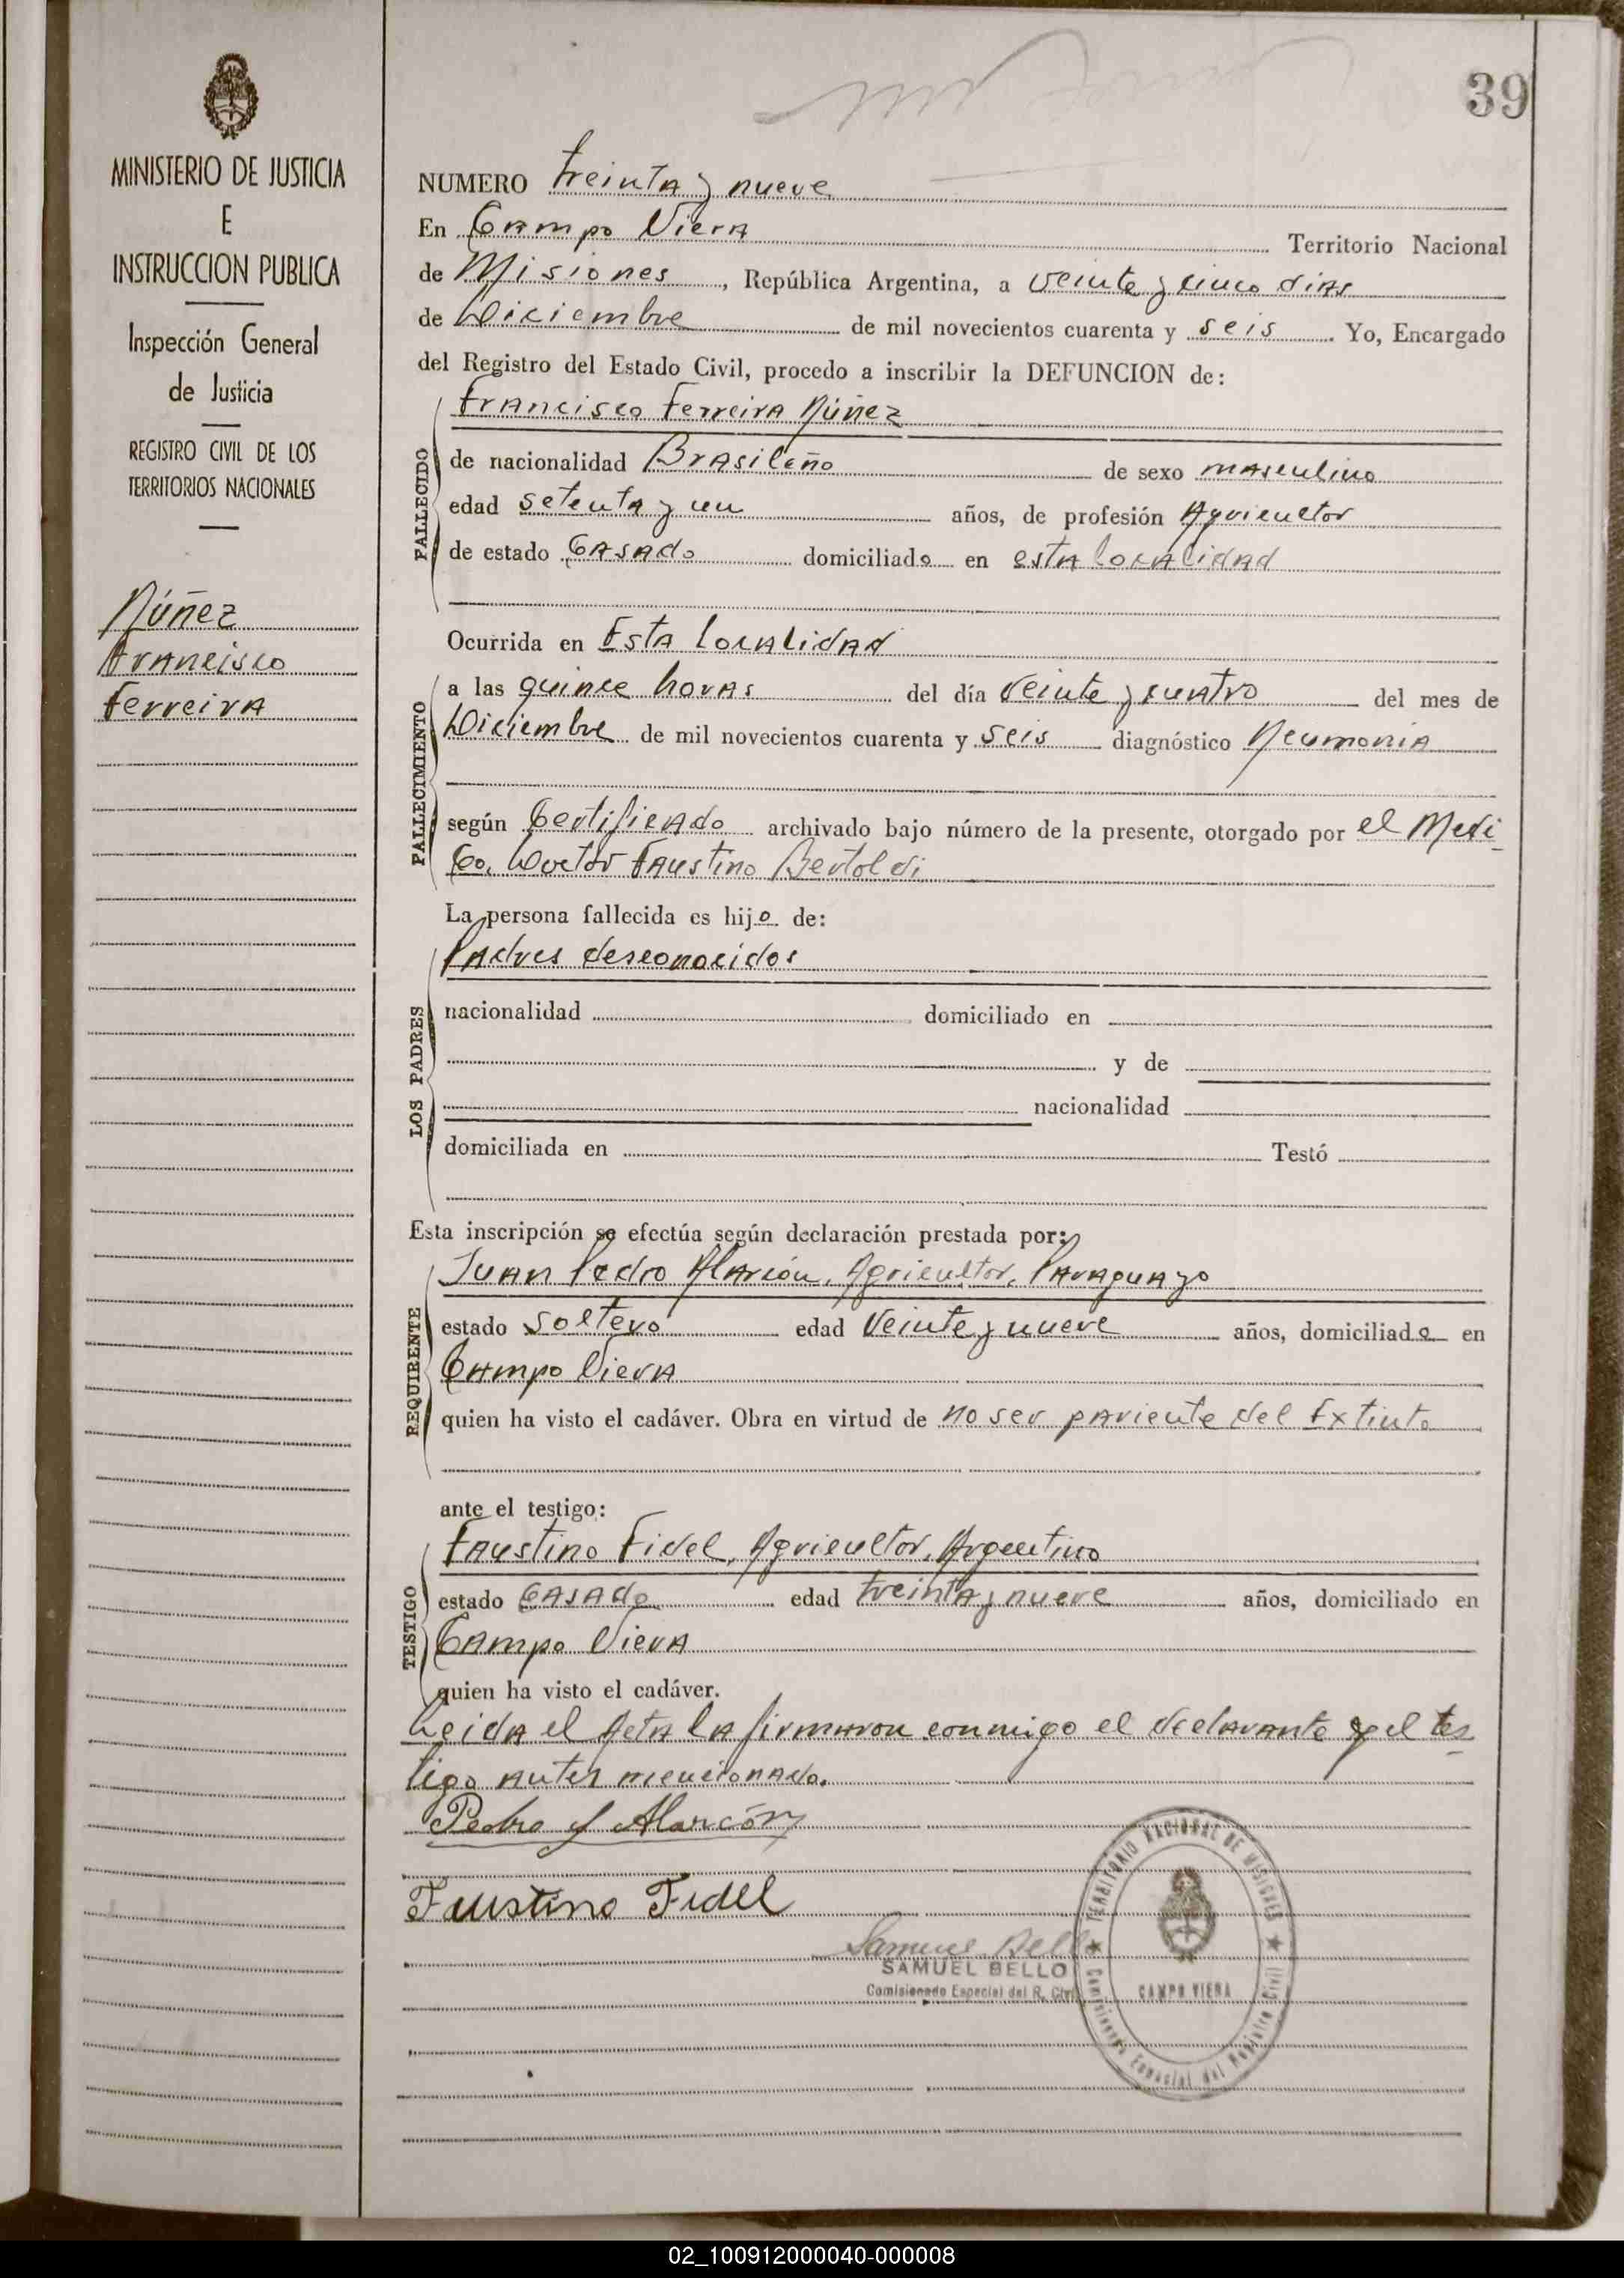 39
MINISTERIO DE JUSTICIA
E
INSTRUCCION PUBLICA
Inspección General
de Justicia
REGISTRO CIVIL DE LOS
TERRITORIOS NACIONALES
Núñez
Francisco
Ferreira
NUMERO treinta y nueve
En Campo Viera Territorio Nacional
de Misiones, República Argentina, a veinte y cinco dias
de Diciembre de mil novecientos cuarenta y seis. Yo, Encargado
del Registro del Estado Civil, procedo a inscribir la DEFUNCION de:
FALLECIDO
Francisco Ferreira Núñez
de nacionalidad Brasileño de sexo masculino
edad setenta y un años, de profesión Agricultor
de estado Casado domiciliado en esta localidad
Ocurrida en Esta localidad
FALLECIMIENTO
a las quince horas del día veinte y cuatro del mes de
Diciembre de mil novecientos cuarenta y seis diagnóstico Neumonia
según Certificado archivado bajo número de la presente, otorgado por el Medi
co, Doctor Faustino Bertoldi
La persona fallecida es hijo de:
LOS PADRES
Padres desconocidos
nacionalidad domiciliado en
y de
nacionalidad
domiciliada en Testó
Esta inscripción se efectúa según declaración prestada por:
REQUIRENTE
Juan Pedro Alarcón, Agricultor, Paraguayo
estado soltero edad veinte y nueve años, domiciliado en
Campo Viera
quien ha visto el cadáver. Obra en virtud de no ser pariente del Extinto
ante el testigo:
TESTIGO
Faustino Fidel, Agricultor, Argentino
estado casado edad treinta y nueve años, domiciliado en
Campo Viera
quien ha visto el cadáver.
Leida el Acta la firmaron conmigo el declarante y el tes
tigo antes mencionado.
Pedro J Alarcón
Faustino Fidel
Samuel Bello
SAMUEL BELLO
Comisionado Especial del R. Civil
TERRITORIO NACIONAL DE MISIONES
CAMPO VIERA
Comisionado Especial del Registro Civil
02_100912000040-000008